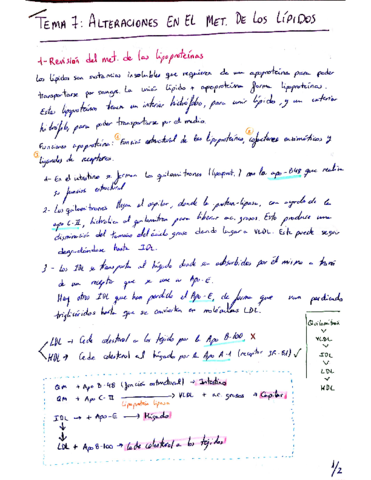 TEMA 7: ALTERACIONES EN EL MET. DE LOS LÍPIDOS
1-Revisión del met. de las lipoproteínas
Los lípidos son sustancias insolubles que requieren de una apoproteína para poder
transportarse por sangre. La unión lípido + apoproteína forma lipoproteínas.
Estas lipoproteínas tienen un interior hidrófobo, para unir lípidos, y un exterior
hidrófilo para poder transportarse por el medio.
Funciones apoproteína: Función estructural de las lipoproteínas, cofactores enzimáticos y
ligandos de receptores.
1- En el intestino se forman los quilomicrones (lipoprot.) con la apo-B48 que realiza
su función estructural
2- Los quilomicrones llegan al capilar, donde la lipasa, con ayuda de la
apo C-II, hidroliza el quilomicrón para liberar ac. grasos. Esto produce una
disminución del tamaño dando lugar a VLDL. Este puede seguir
degradándose hasta IDL.
3- Los IDL se transporta al hígado donde son absorbidos por él mismo a través
de un receptor que se une a Apo-E.
Hay otros IDL que han perdido el Apo-E, de forma que van perdiendo
triglicéridos hasta que se convierten en moléculas LDL.
LDL → Cede colesterol a los tejidos por la Apo B-100 X
HDL → Cede colesterol al hígado por la Apo A-1 (receptor SR-B1) ✓
Quilomicrón
↓
VLDL
↓
IDL
↓
LDL
↓
HDL
QM + Apo B-48 (función estructural) → Intestino
QM + Apo C-II → VLDL + ac. grasos → Capilar
Lipoproteín lipasa
IDL → + Apo-E → Hígado
↓
LDL + Apo B-100 → Cede colesterol a los tejidos
1/2